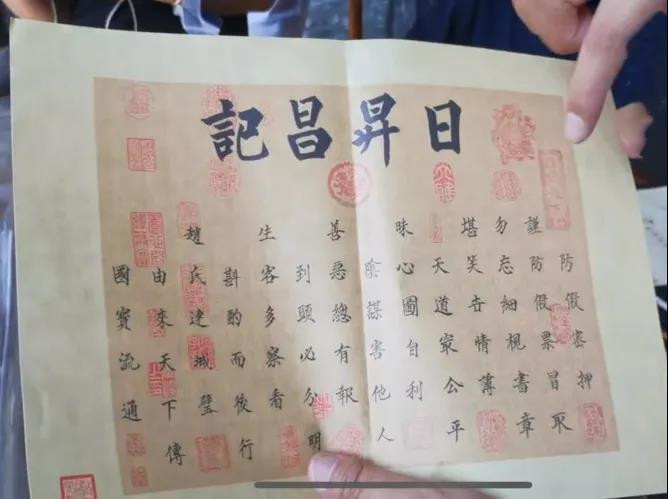 日昇昌記
防假密押
謹防假票冒取
勿忘細視書章
堪笑世情薄
天道最公平
昧心圖自利
陰謀害他人
善惡總有報
到頭必分明
生客多察看
斟酌而後行
趙氏連城璧
由來天下傳
國寶流通